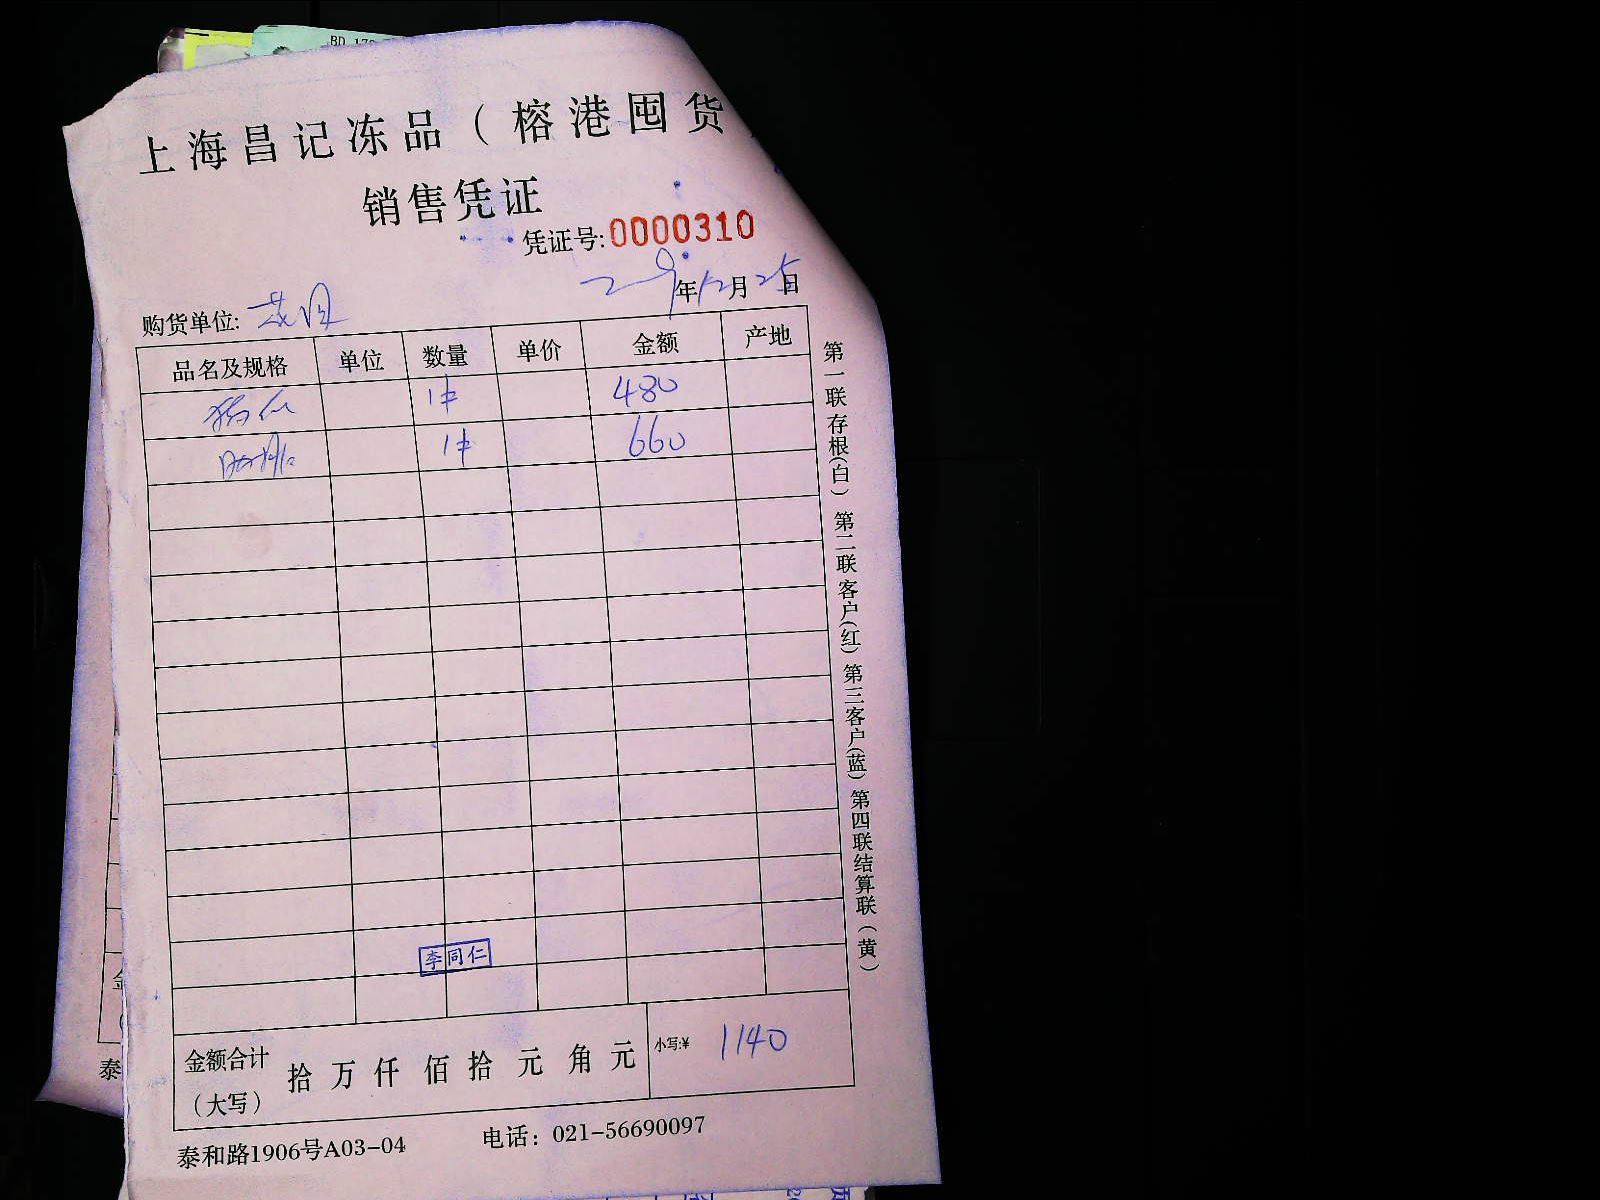 BD 17
上海昌记冻品（榕港囤货
销售凭证
凭证号:0000310
年12月25日
购货单位:
品名及规格 单位 数量 单价 金额 产地
1件 480
1件 660
李同仁
金额合计（大写） 拾 万 仟 佰 拾 元 角 元 小写:¥ 1140
泰和路1906号A03-04 电话：021-56690097
第一联存根(白) 第二联客户(红) 第三客户(蓝) 第四联结算联(黄)
金
泰